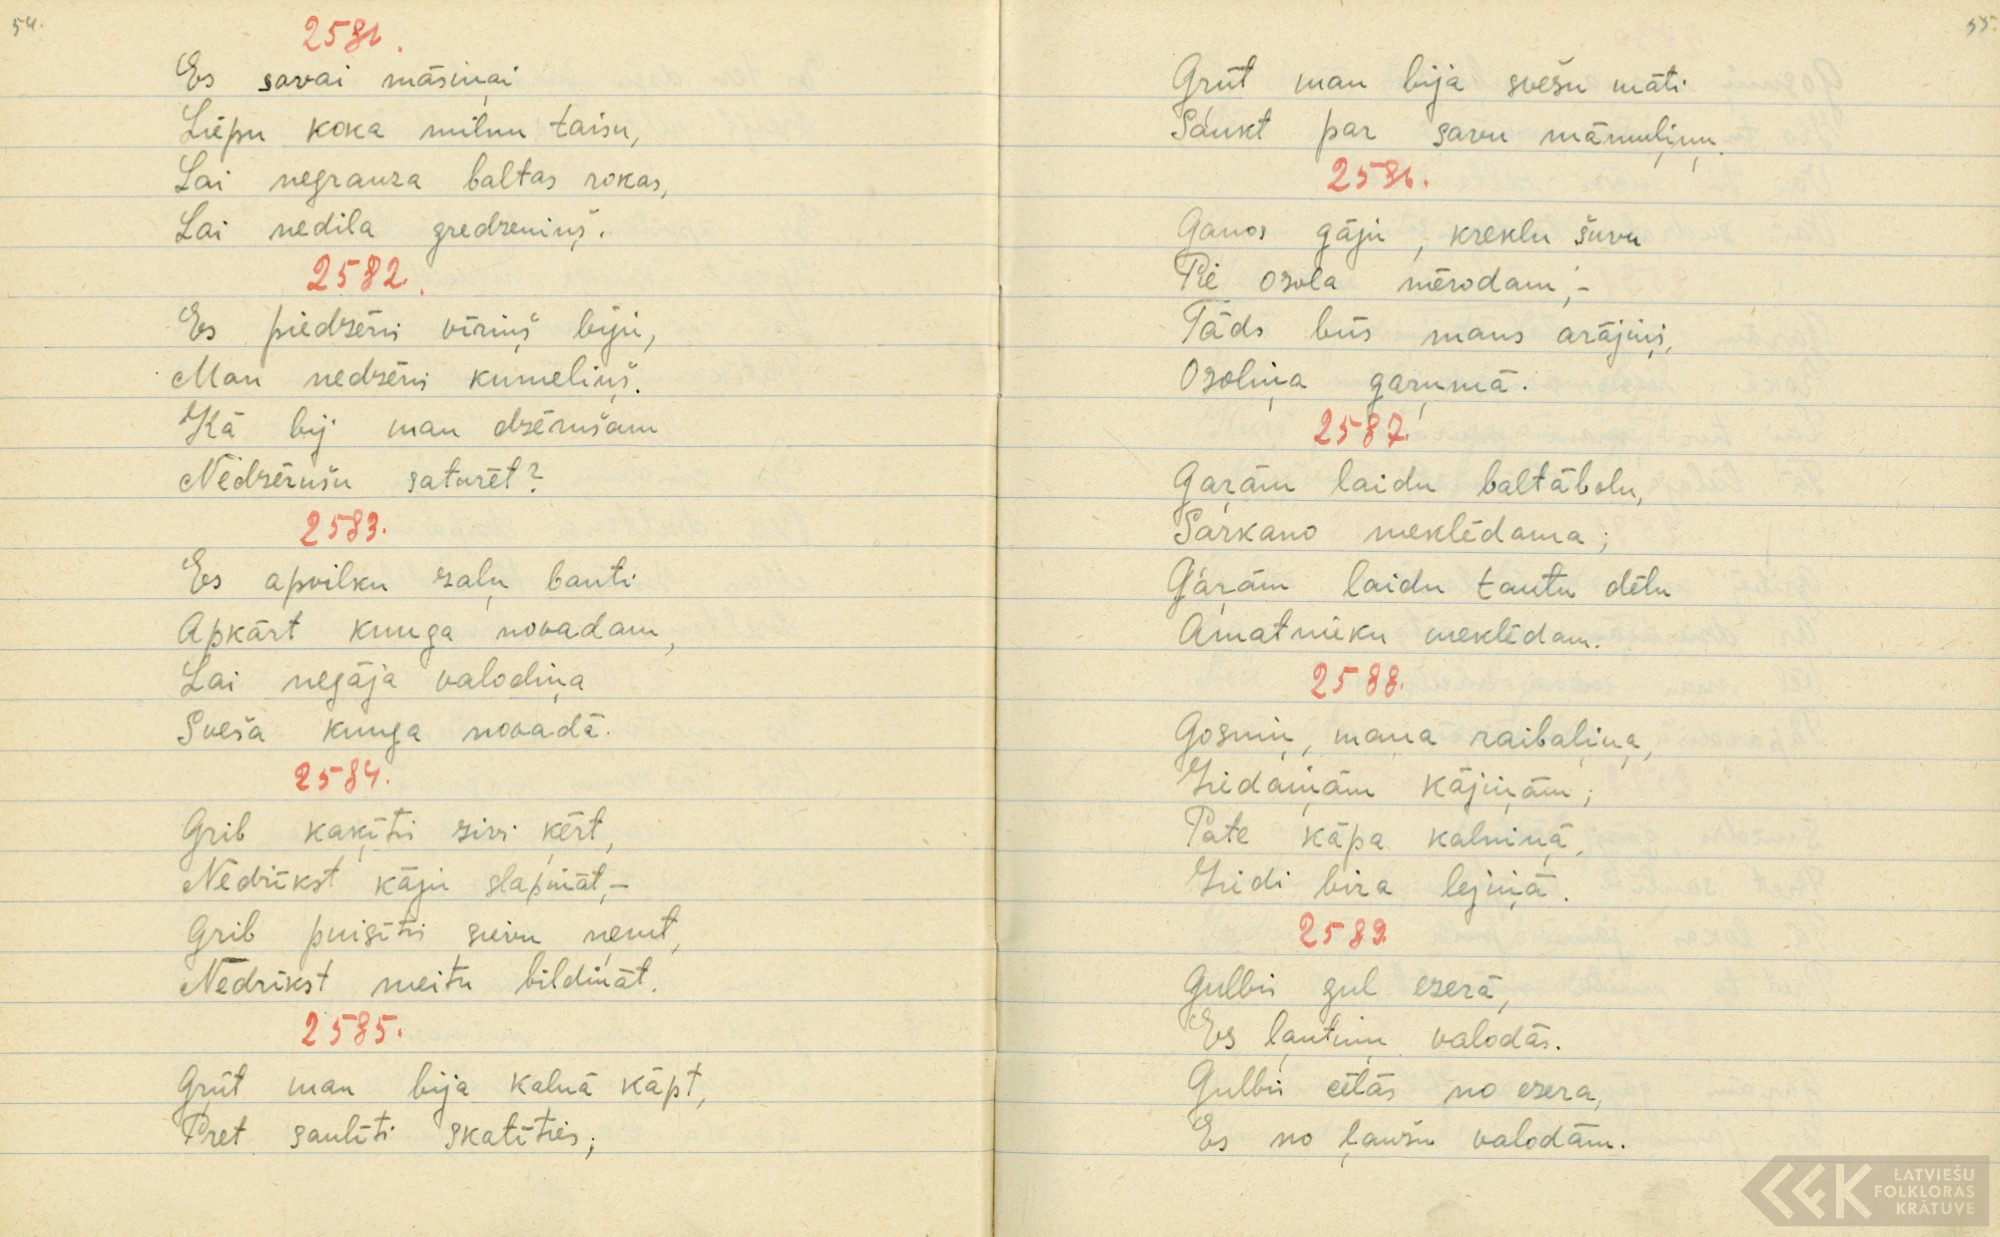 54.
2581.
Es savai māsiņai
Liepu koka milnu taisu,
Lai negrauza baltas rokas,
Lai nedila gredzeniņš.
2582.
Es piedzēris vīriņš biju,
Man nedzēris kumeliņš.
Kā bij man dzērušam
Nedzērušu saturēt?
2583.
Es apvilku zaļu banti
Apkārt kunga novadam,
Lai negāja valodiņa
Sveša kunga novadā.
2584.
Grib kaķītis zivi ķērt,
Nedrīkst kāju slapināt, –
Grib puisītis sievu ņemt,
Nedrīkst meitu bildināt.
2585.
Grūt man bija kalnā kāpt,
Pret saulīti skatīties;
55.
Grūt man bija svešu māti
Saukt par savu māmuliņu.
2586.
Ganos gāju, kreklu šuvu
Pie ozola mērodam, –
Tāds būs mans arājiņis,
Ozoliņa gaŗumā.
2587.
Gaŗām laidu baltābolu,
Sarkano meklēdama;
Gaŗām laidu tautu dēlu
Amatnieku meklēdam.
2588.
Gosniņ, mana raibaliņa,
Ziedaiņām kājiņām;
Pate kāpa kalniņā,
Ziedi bira lejiņā.
2589.
Gulbis gul ezerā,
Es ļautiņu valodās.
Gulbis cēlās no ezera,
Es no ļaužu valodām.
LATVIEŠU
FOLKLORAS
KRĀTUVE